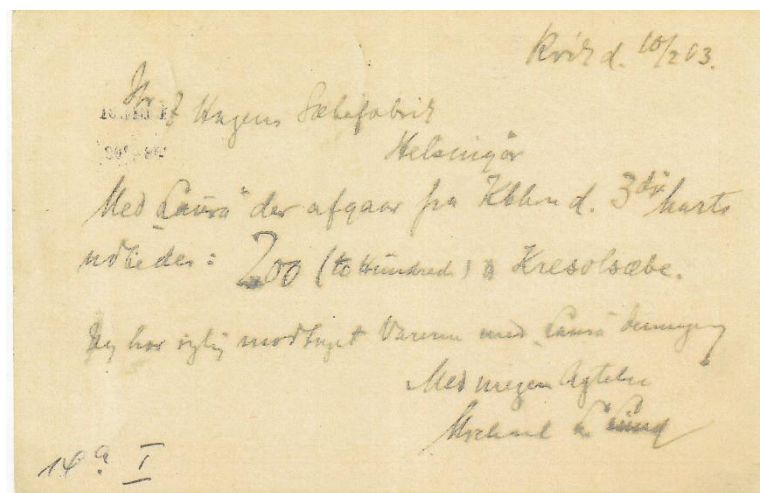 d. 10/2 03.
Hr J Hagens Sæbefabrik
Helsingör
Med "Laura" der afgaar fra Kbhvn d. 3die Marts
udbedes: 200 (to Hundrede) Kresolsæbe.
Jeg har rigtig modtaget Varerne med "Laura"
Med megen Agtelse
Michael Lund
14a I